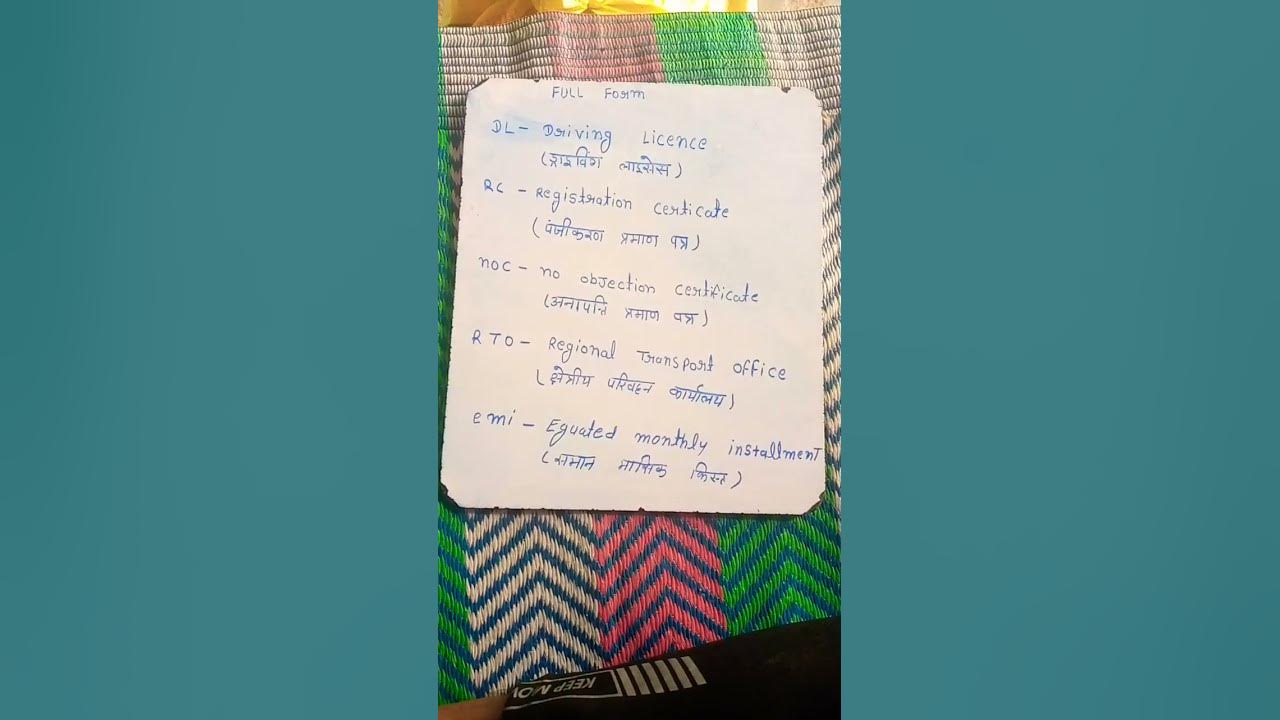 FULL Form
DL - Driving Licence
(ड्राइविंग लाइसेस)
RC - Registration certicate
(पंजीकरण प्रमाण पत्र)
noc - no objection certificate
(अनापत्ति प्रमाण पत्र)
RTO - Regional Transport office
(क्षेत्रीय परिवहन कार्यालय)
emi - Equated monthly installment
(समान मासिक किस्त)
KEEP MOV